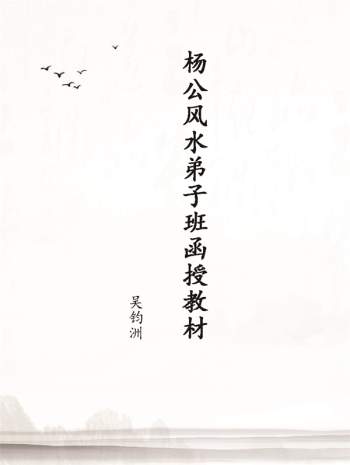 杨公风水弟子班函授教材
吴钧洲